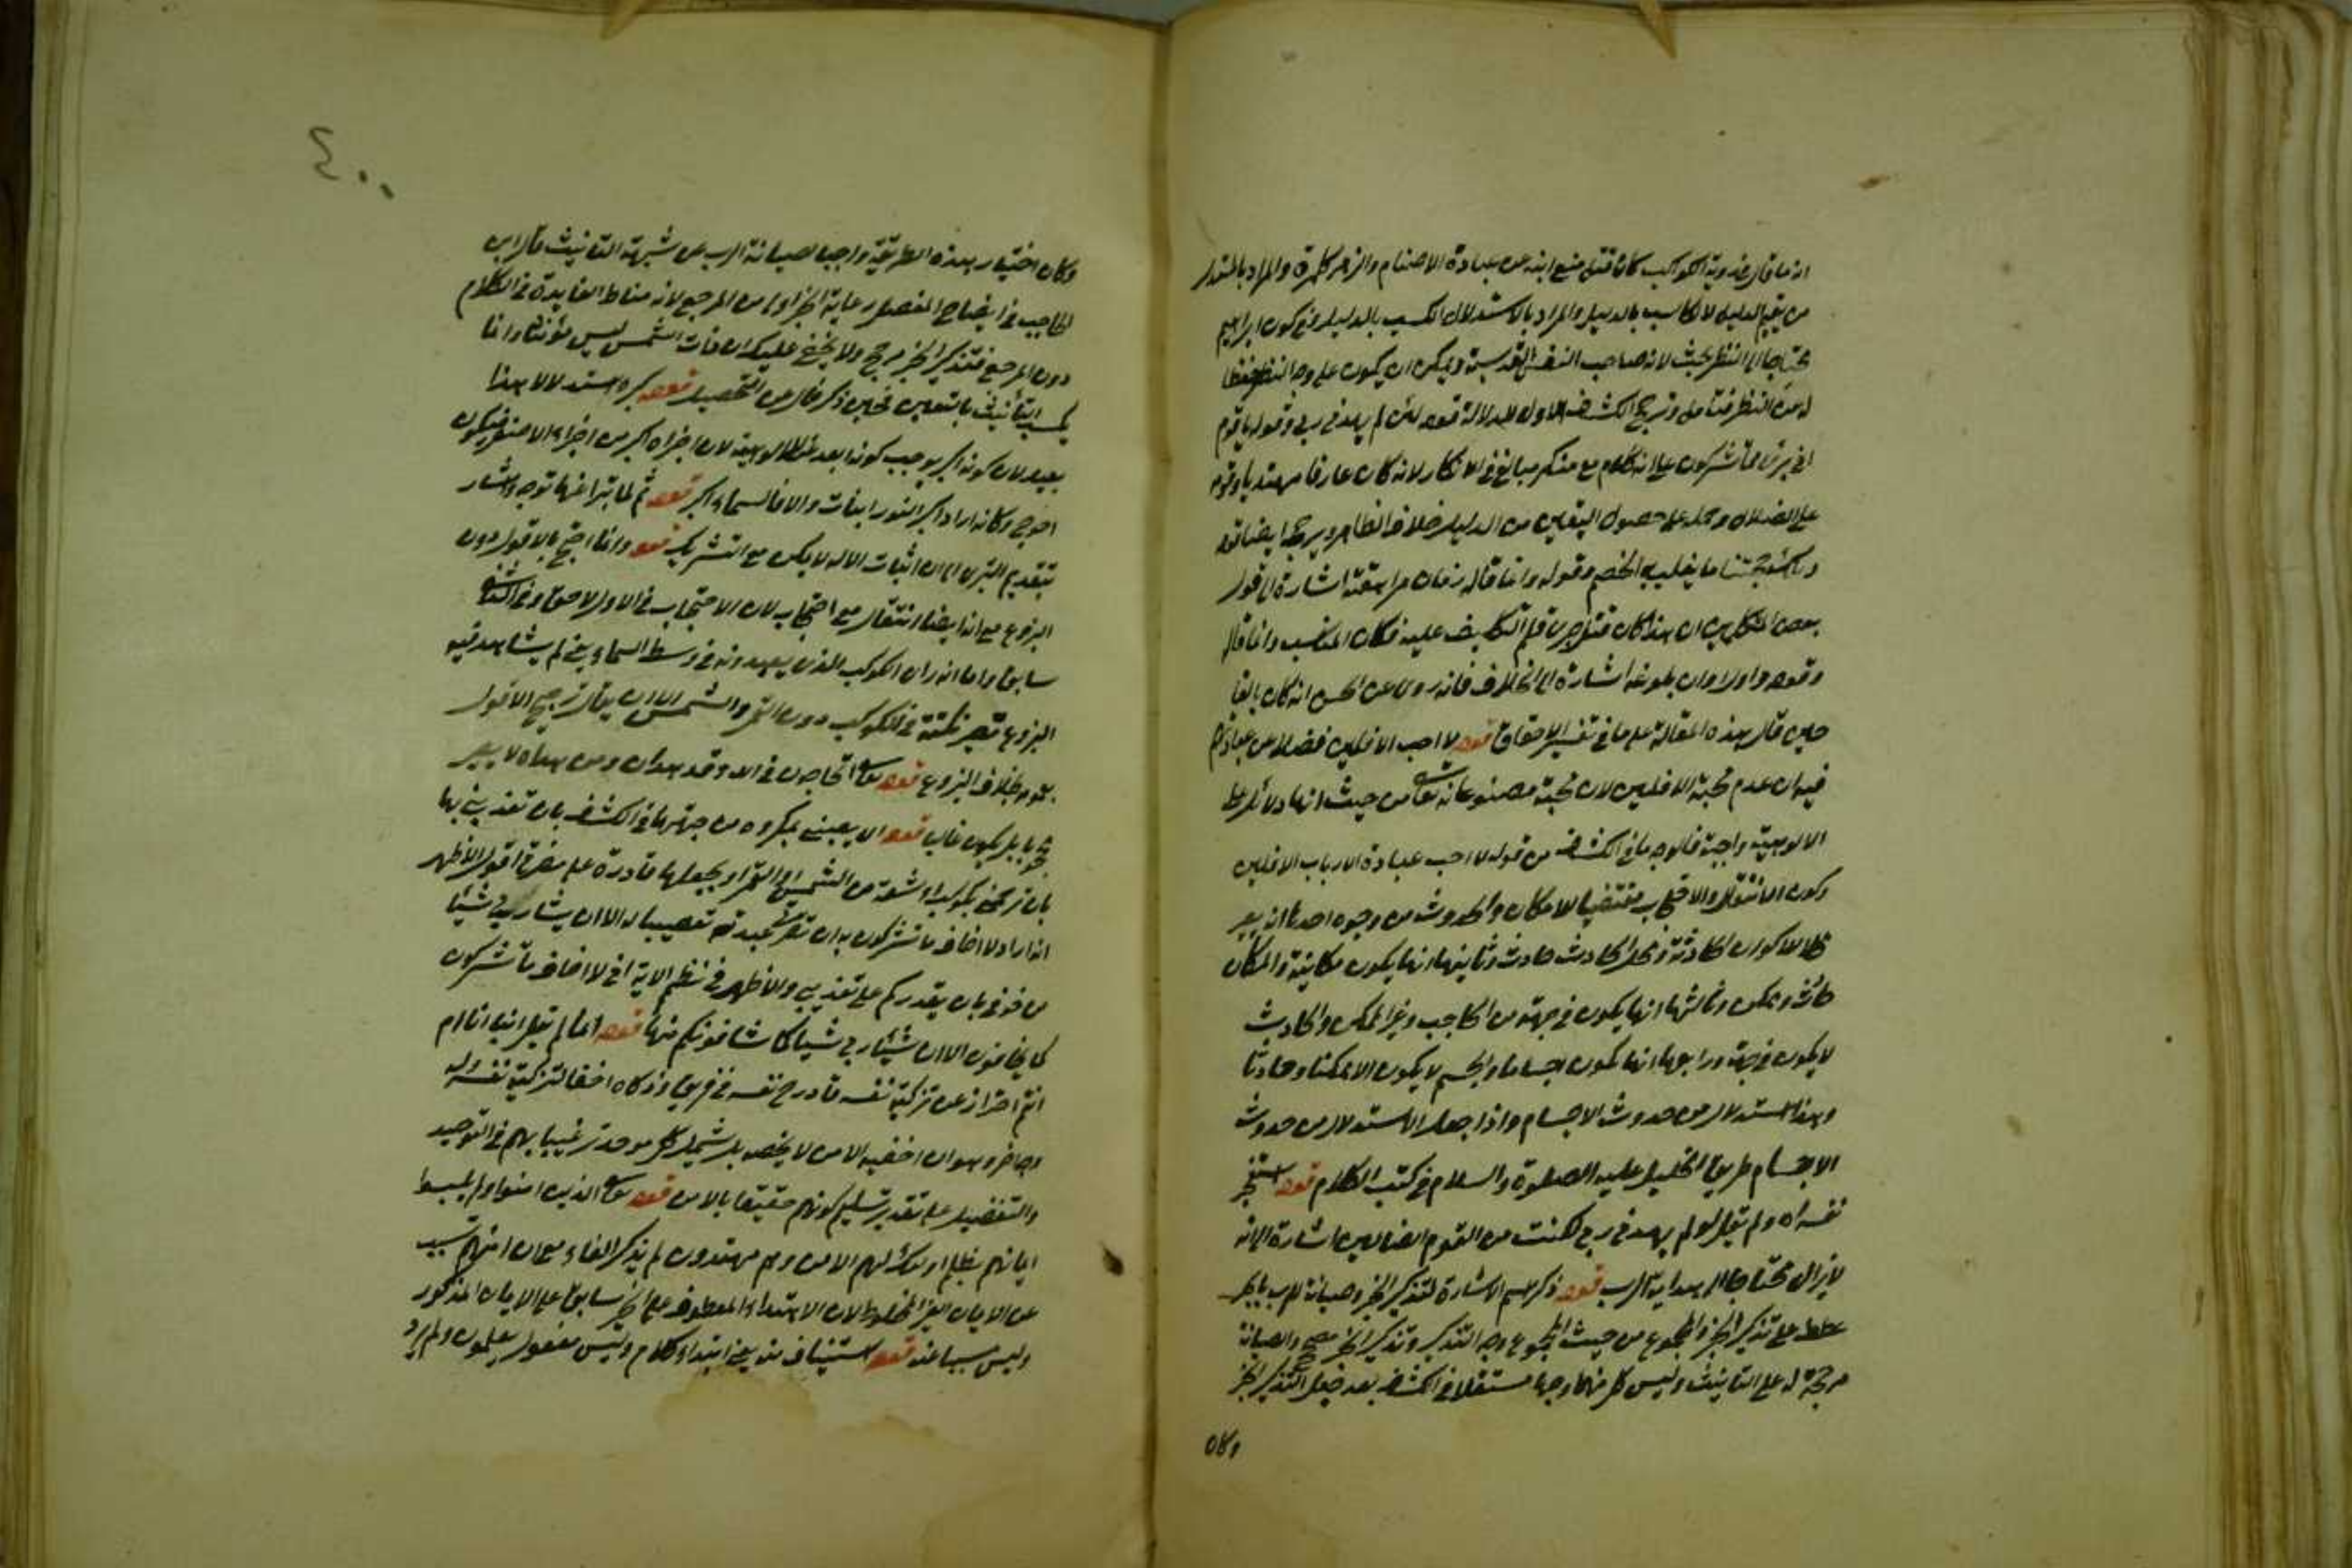 انما قال عند رؤية الكواكب كان قبل منع ابنه عن عبادة الاصنام والزهرة والمراد بالمستدل
من يقيم الدليل لا كاسب بالدليل والمراد بالاستدلال الكسب بالدليل كون ابراهيم
محتاجا الى النظر بحث لانه صاحب النفس القدسية ويمكن ان يكون على وجه النظر
النظر فتامل الكشاف الاول لدلالة قوله لئن لم يهدني ربي وقوله يا قوم
اني بريء مما تشركون على انه كلام مع منكر مبالغ في الانكار لانه كان عارفا
على الضلال وحمله على حصول اليقين من الدليل خلاف الظاهر ايضا قوله
حجتنا ما يغلب به الخصم وقوله وانما قاله زمان مراهقته اشارة الى قول
بعض المتكلمين ان هذا كان قبل جريان قلم التكليف عليه فكان المناسب وانما قال
وقوله اول اوان بلوغه اشارة الى الخلاف فانه روي عن الحسن انه كان بالغا
حين قال هذه المقالة على ما في تفسير قوله لا احب الافلين فضلا عن عبادتهم
فيه ان عدم محبة الافلين لان محبة مصنوعاته تعالى من حيث انها دلائل على
الالوهية واجبة فالوجه ما في الكشاف من قوله لا احب عبادة الارباب الافلين
وكون الانتقال والاحتجاب مقتضيا للامكان والحدوث من وجوه احدها انه
للاكوان الحادثة ومحل الحادث حادث وثانيها انها يكون مكانية والمكان
وممكن وثالثها انها يكون في جهة من الحاجب وغير الممكن والحادث
لا يكون في جهة ورابعها انها يكون اجساما والجسم لا يكون الا ممكنا وحادثا
وهذا استدلال من حدوث الاجسام واذا جعل الاستدلال من حدوث
الاجسام طريق الخليل عليه الصلوة والسلام في كتب الكلام قوله استعجز
نفسه اه ولم يقل لو لم يهدني ربي لكنت من القوم الضالين اشارة الى انه
لا يزال محتاجا الى هداية الرب قوله ذكر اسم الاشارة لتذكير الخبر وصيانة للرب
على تذكير الخبر والمجموع من حيث المجموع وجه التذكير وتذكير الخبر مصحح والصيانة
مرجحة له على التانيث وليس كل منهما وجها مستقلا في الكشاف بعد جعل التذكير
وكان
٤٠٠
وكان اختيار هذه الطريقة واجبا لصيانة الرب عن شبهة التانيث قال ابن
الحاجب في ايضاح المفصل رعاية الخبر اولى من المرجع لانه مناط الفايدة في الكلام
دون المرجع فتذكير الخبر مرجح ولا يخفى عليك ان ذات الشمس ليس مؤنثا وانما
يكسب التانيث بالتعبير فحين ذكر التحصيل قوله كبره استدلالا هذا
بعيد لان كونه اكبر يوجب كونه ابعد لان اجزاه اكثر من اجزاء الاصغر فيكون
احوج وكانه اراد اكبر النور والا فالسماء اكبر قوله ثم لما تبرا عنها توجه واشار
بتقديم التبري الى ان اثبات الاله لا يمكن مع التشريك قوله وانما احتج بالافول دون
البزوغ مع انه ايضا انتقال مع احتجاب لان الاحتجاب في الاول لاحق وفي الثاني
سابق واما انه راى الكوكب الذي يعبدونه في وسط السماء يعني لم يشاهد فيه
البزوغ نكتة في الكوكب دون القمر والشمس الا ان يقال ترجح الافول
بخلاف البزوغ قوله تعالى اتحاجوني في الله وقد هدان ومن هداه لا
بل يكون غالبا قوله ان يصيبني بمكروه من جهتها في الكشاف بان تعذبني بها
بان ترجمني بكوكب او بشعة من الشمس او القمر او يجعلها قادرة على مضرتي اقول الاظهر
انه اراد لا اخاف ما تشركون به الا ان يشاء ربي شيئا
من خوفي بان يقدركم على تعذيبي والاظهر في نظم الاية اني لا اخاف ما تشركون
كما تخافون الا ان يشاء ربي شيئا كما تخافونكم منها قوله انما لم يقل اينا انا ام
انتم احترازا عن تزكية نفسه فادرج نفسه في فريق وزكاه اخفا لتزكية نفسه وله
وجه اخر وهو ان احقية الامن لا يخصه بل يشمل كل موحد ترغيبا لهم في التوحيد
والتفضيل على تقدير تسليم كونهم حقيقا بالامن قوله تعالى الذين امنوا ولم يلبسوا
ايمانهم بظلم اولئك لهم الامن وهم مهتدون لم يذكر الفاء مع ان امنهم تسبب
عن الايمان الغير المخلوط لان الاهتداء المعطوف على الخبر سابق على الايمان المذكور
وليس سببا عنه قوله استيناف منه يعني ابتداء كلام وليس مفعول يعلمون ولم يرد